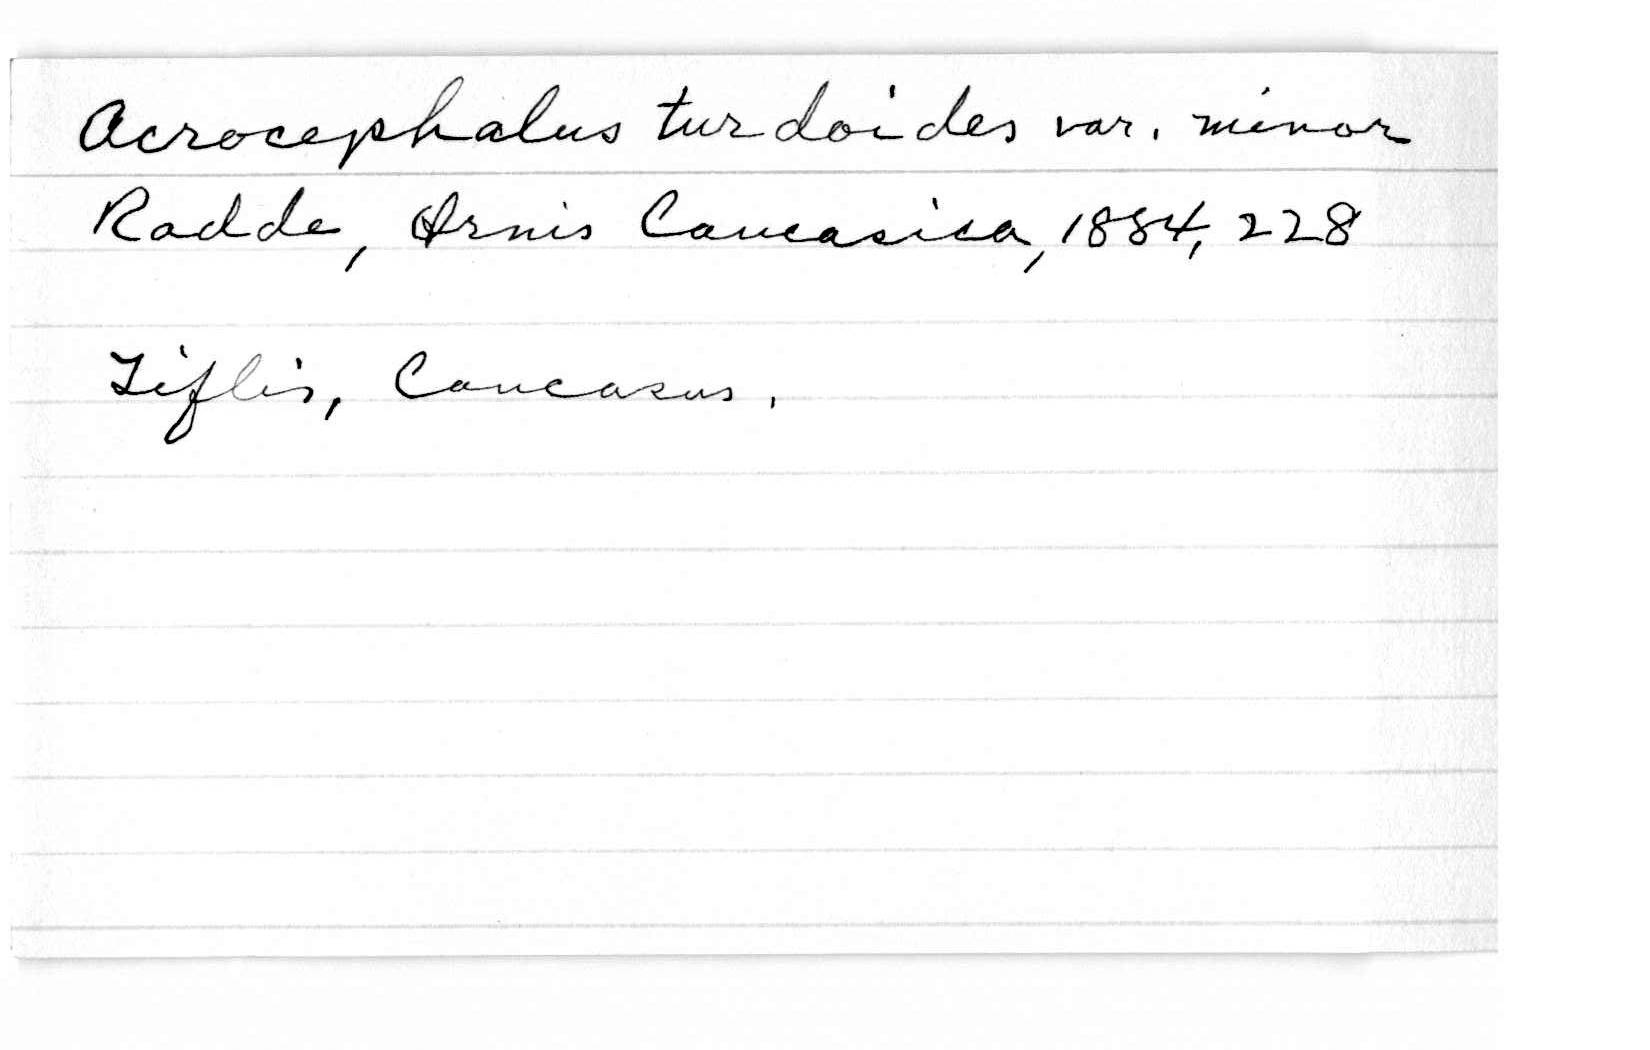 Acrocephalus turdoides var. minor
Radde, Ornis Caucasica, 1884, 228
Tiflis, Caucasus.